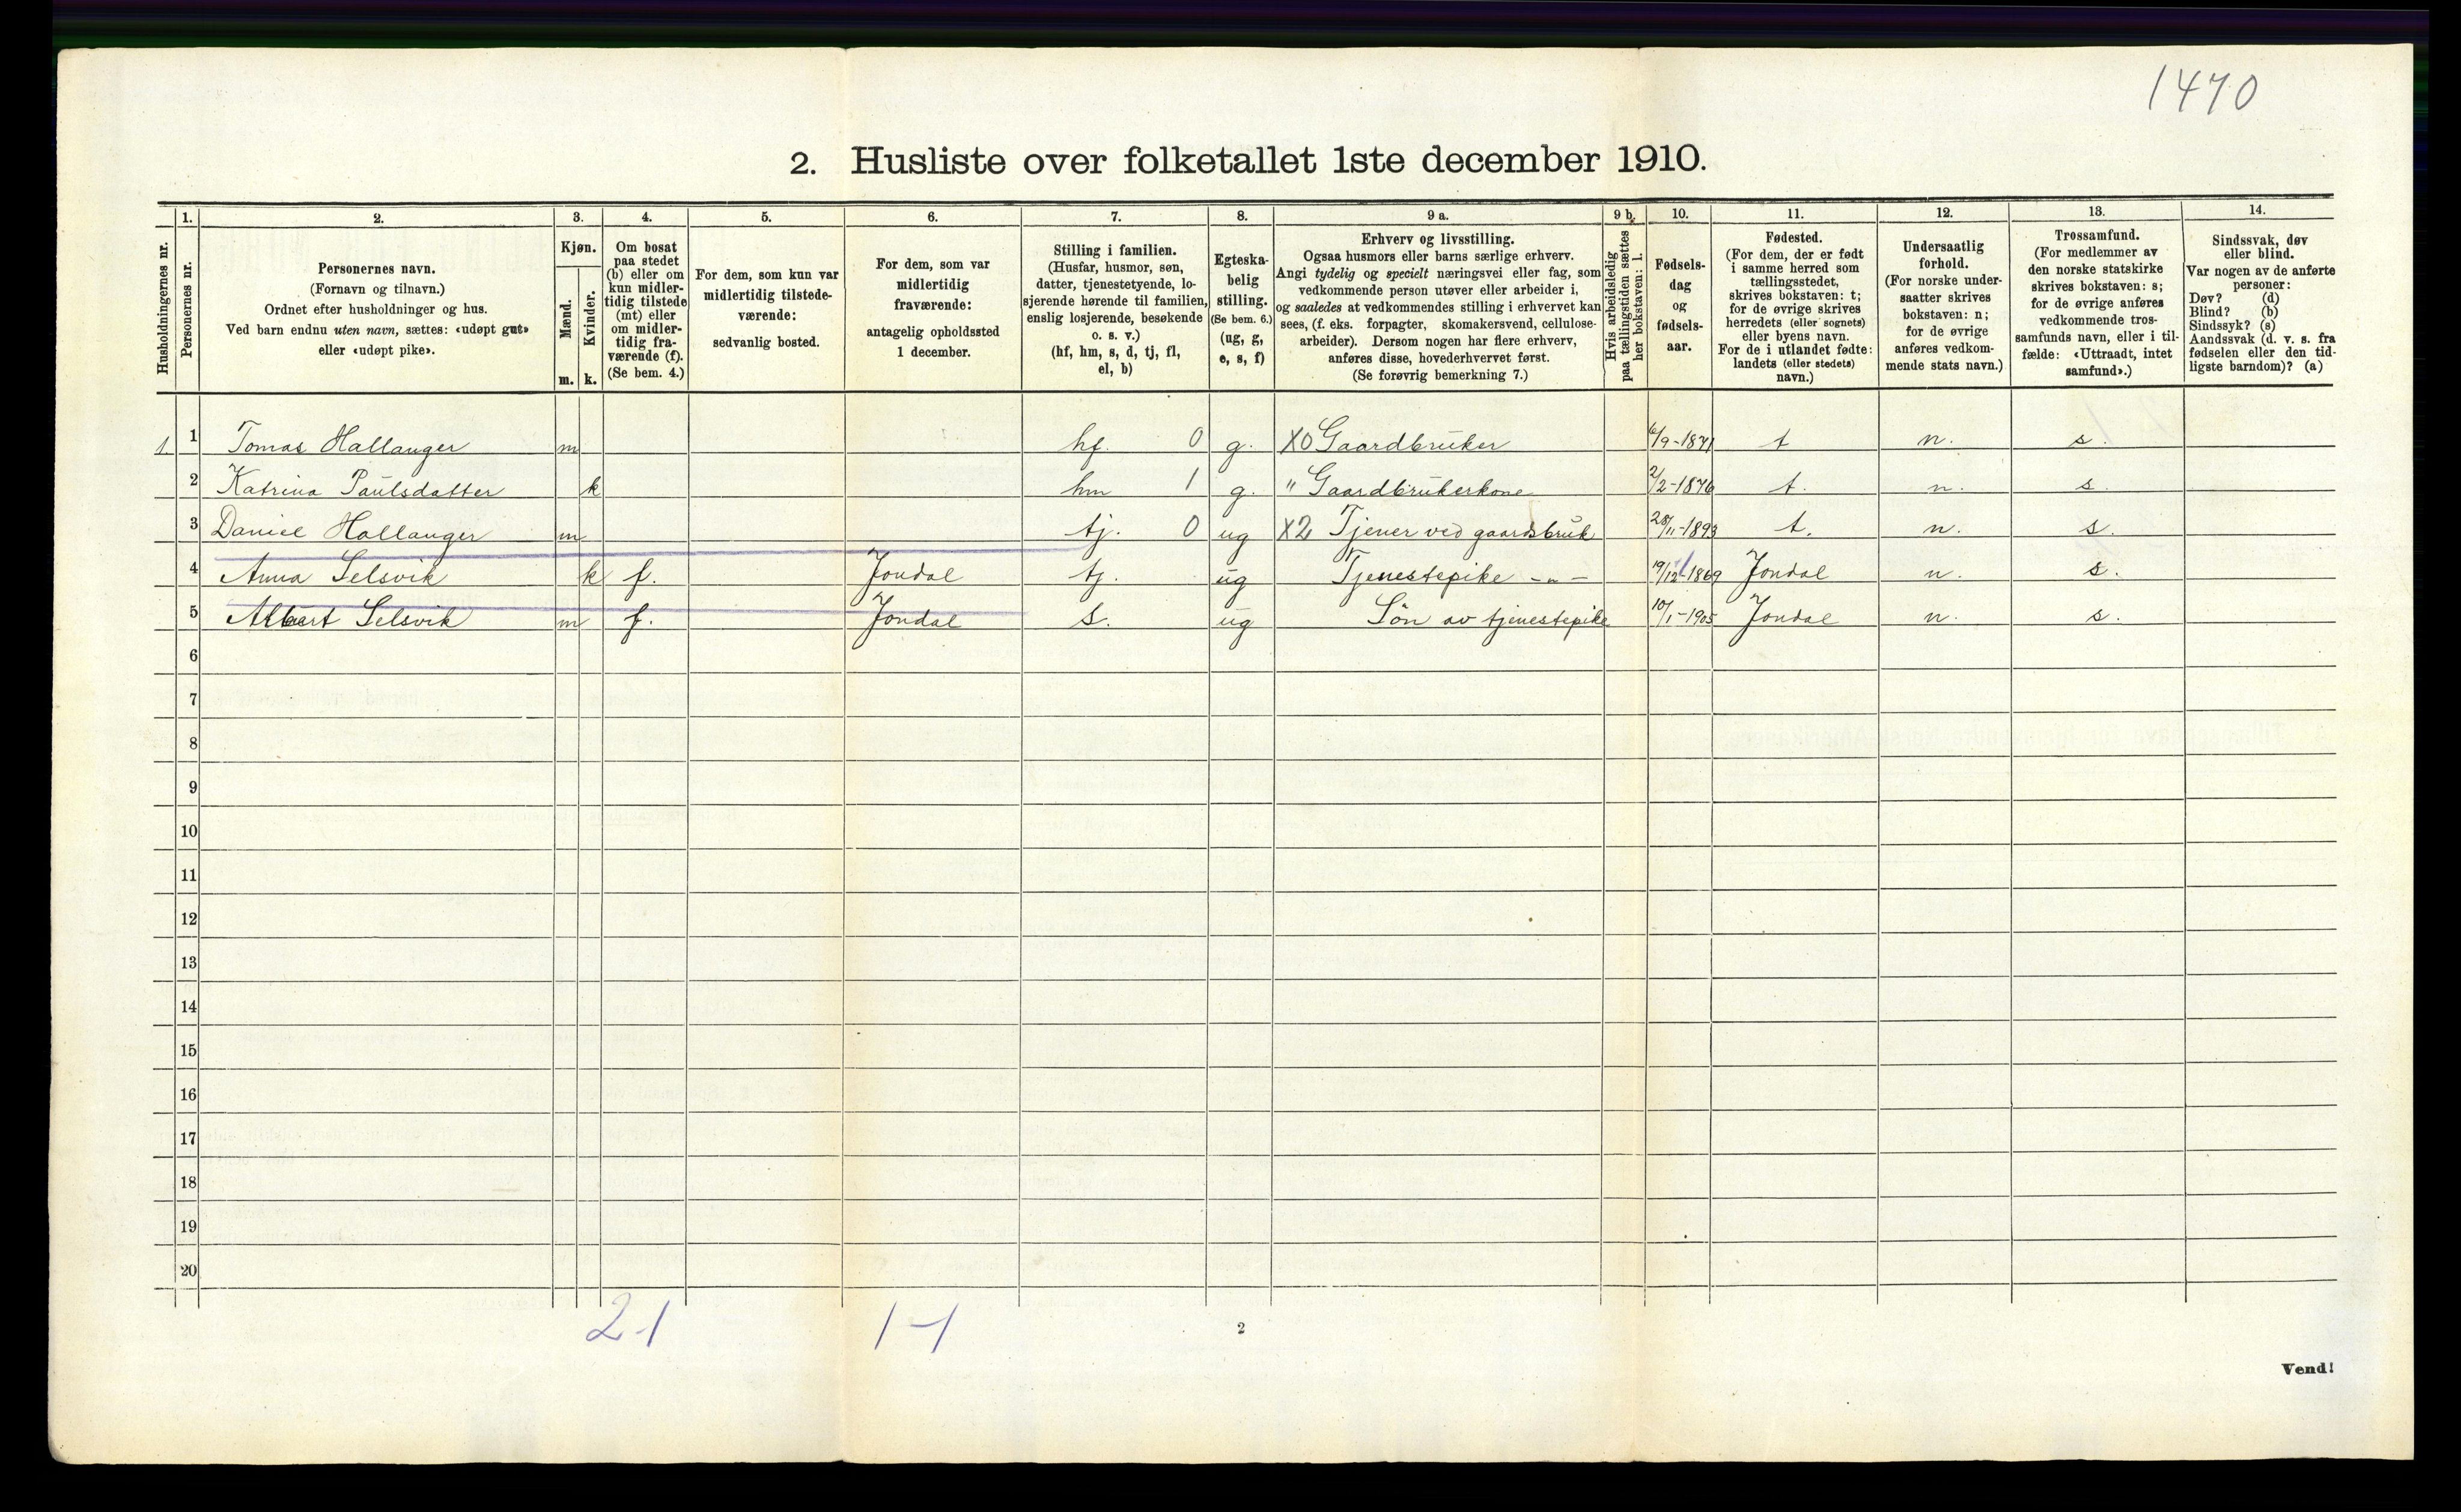 1470
2. Husliste over folketallet 1ste december 1910.
Husholdningernes nr.
1.
Personernes nr.
2.
Personernes navn.
(Fornavn og tilnavn.)
Ordnet efter husholdninger og hus.
Ved barn endnu uten navn, sættes: «udøpt gut»
eller «udøpt pike».
3.
Kjøn.
Mænd.
Kvinder.
m. k.
4.
Om bosat
paa stedet
(b) eller om
kun midler-
tidig tilstede
(mt) eller
om midler-
tidig fra-
værende (f).
(Se bem. 4.)
5.
For dem, som kun var
midlertidig tilstede-
værende:
sedvanlig bosted.
6.
For dem, som var
midlertidig
fraværende:
antagelig opholdssted
1 december.
7.
Stilling i familien.
(Husfar, husmor, søn,
datter, tjenestetyende, lo-
sjerende hørende til familien,
enslig losjerende, besøkende
o. s. v.)
(hf, hm, s, d, tj, fl,
el, b)
8.
Egteska-
belig
stilling.
(Se bem. 6.)
(ug, g,
e, s, f)
9 a.
Erhverv og livsstilling.
Ogsaa husmors eller barns særlige erhverv.
Angi tydelig og specielt næringsvei eller fag, som
vedkommende person utøver eller arbeider i,
og saaledes at vedkommendes stilling i erhvervet kan
sees, (f. eks. forpagter, skomakersvend, cellulose-
arbeider). Dersom nogen har flere erhverv,
anføres disse, hovederhvervet først.
(Se forøvrig bemerkning 7.)
9 b.
Hvis arbeidsledig
paa tællingstiden sættes
her bokstaven: l.
10.
Fødsels-
dag
og
fødsels-
aar.
11.
Fødested.
(For dem, der er født
i samme herred som
tællingsstedet,
skrives bokstaven: t;
for de øvrige skrives
herredets (eller sognets)
eller byens navn.
For de i utlandet fødte:
landets (eller stedets)
navn.)
12.
Undersaatlig
forhold.
(For norske under-
saatter skrives
bokstaven: n;
for de øvrige
anføres vedkom-
mende stats navn.)
13.
Trossamfund.
(For medlemmer av
den norske statskirke
skrives bokstaven: s;
for de øvrige anføres
vedkommende tros-
samfunds navn, eller i til-
fælde: «Uttraadt, intet
samfund».)
14.
Sindssvak, døv
eller blind.
Var nogen av de anførte
personer:
Døv? (d)
Blind? (b)
Sindssyk? (s)
Aandssvak (d. v. s. fra
fødselen eller den tid-
ligste barndom)? (a)
1 1 Tomas Hallanger m hf. 0 g. X0 Gaardbruker 6/9-1871 t n. s.
2 Katrina Paulsdatter k hm 1 g. " Gaardbrukerkone 2/2-1876 t. n. s.
3 Daniel Hallanger m tj. 0 ug X2 Tjener ved gaardsbruk 28/11-1893 t. n. s.
4 Anna Selsvik k f. Jondal tj. ug Tjenestepike -"- 19/12-1869 Jondal n. s.
5 Albert Selsvik m f. Jondal s. ug Sön av tjenestepike 10/1-1905 Jondal n. s.
6
7
8
9
10
11
12
13
14
15
16
17
18
19
20
2-1 1-1
2
Vend!